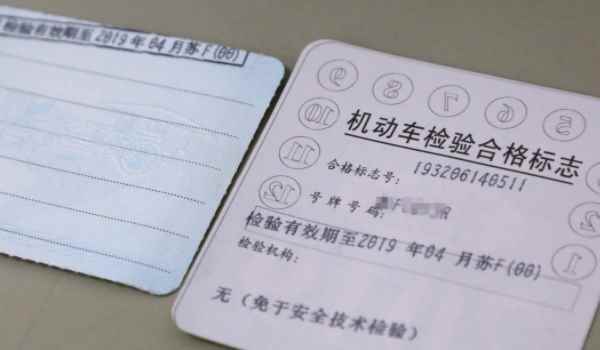 检验有效期至2019 年 04 月苏F(00)
9 8 7 6 5
10
机动车检验合格标志
11
合格标志号: 193206140511
12
号 牌 号 码:
2
检验有效期至2019 年 04 月苏F(00)
1
检验机构:
无（免于安全技术检验）